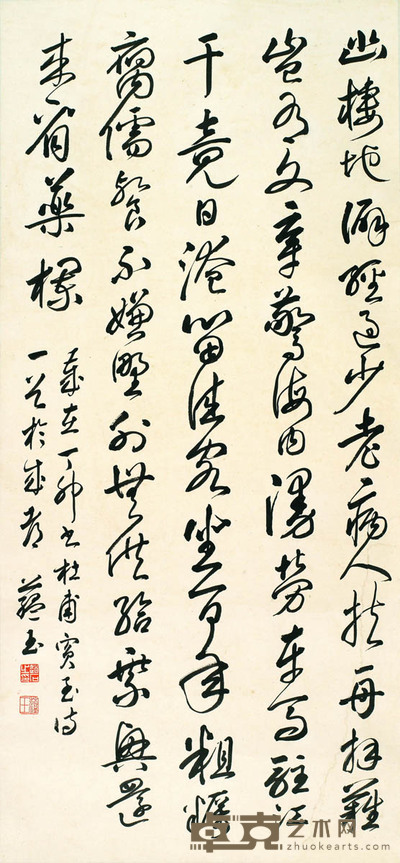 幽棲地僻經過少老病人扶再拜難
豈有文章驚海内漫勞車馬駐江
干竟日淹留佳客坐百年粗糲
腐儒餐不嫌野外無供給乘興還
來看藥欄
歲在丁卯書杜甫賓至詩
一首於成都 蘊玉
卓克艺术网
zhuokearts.com